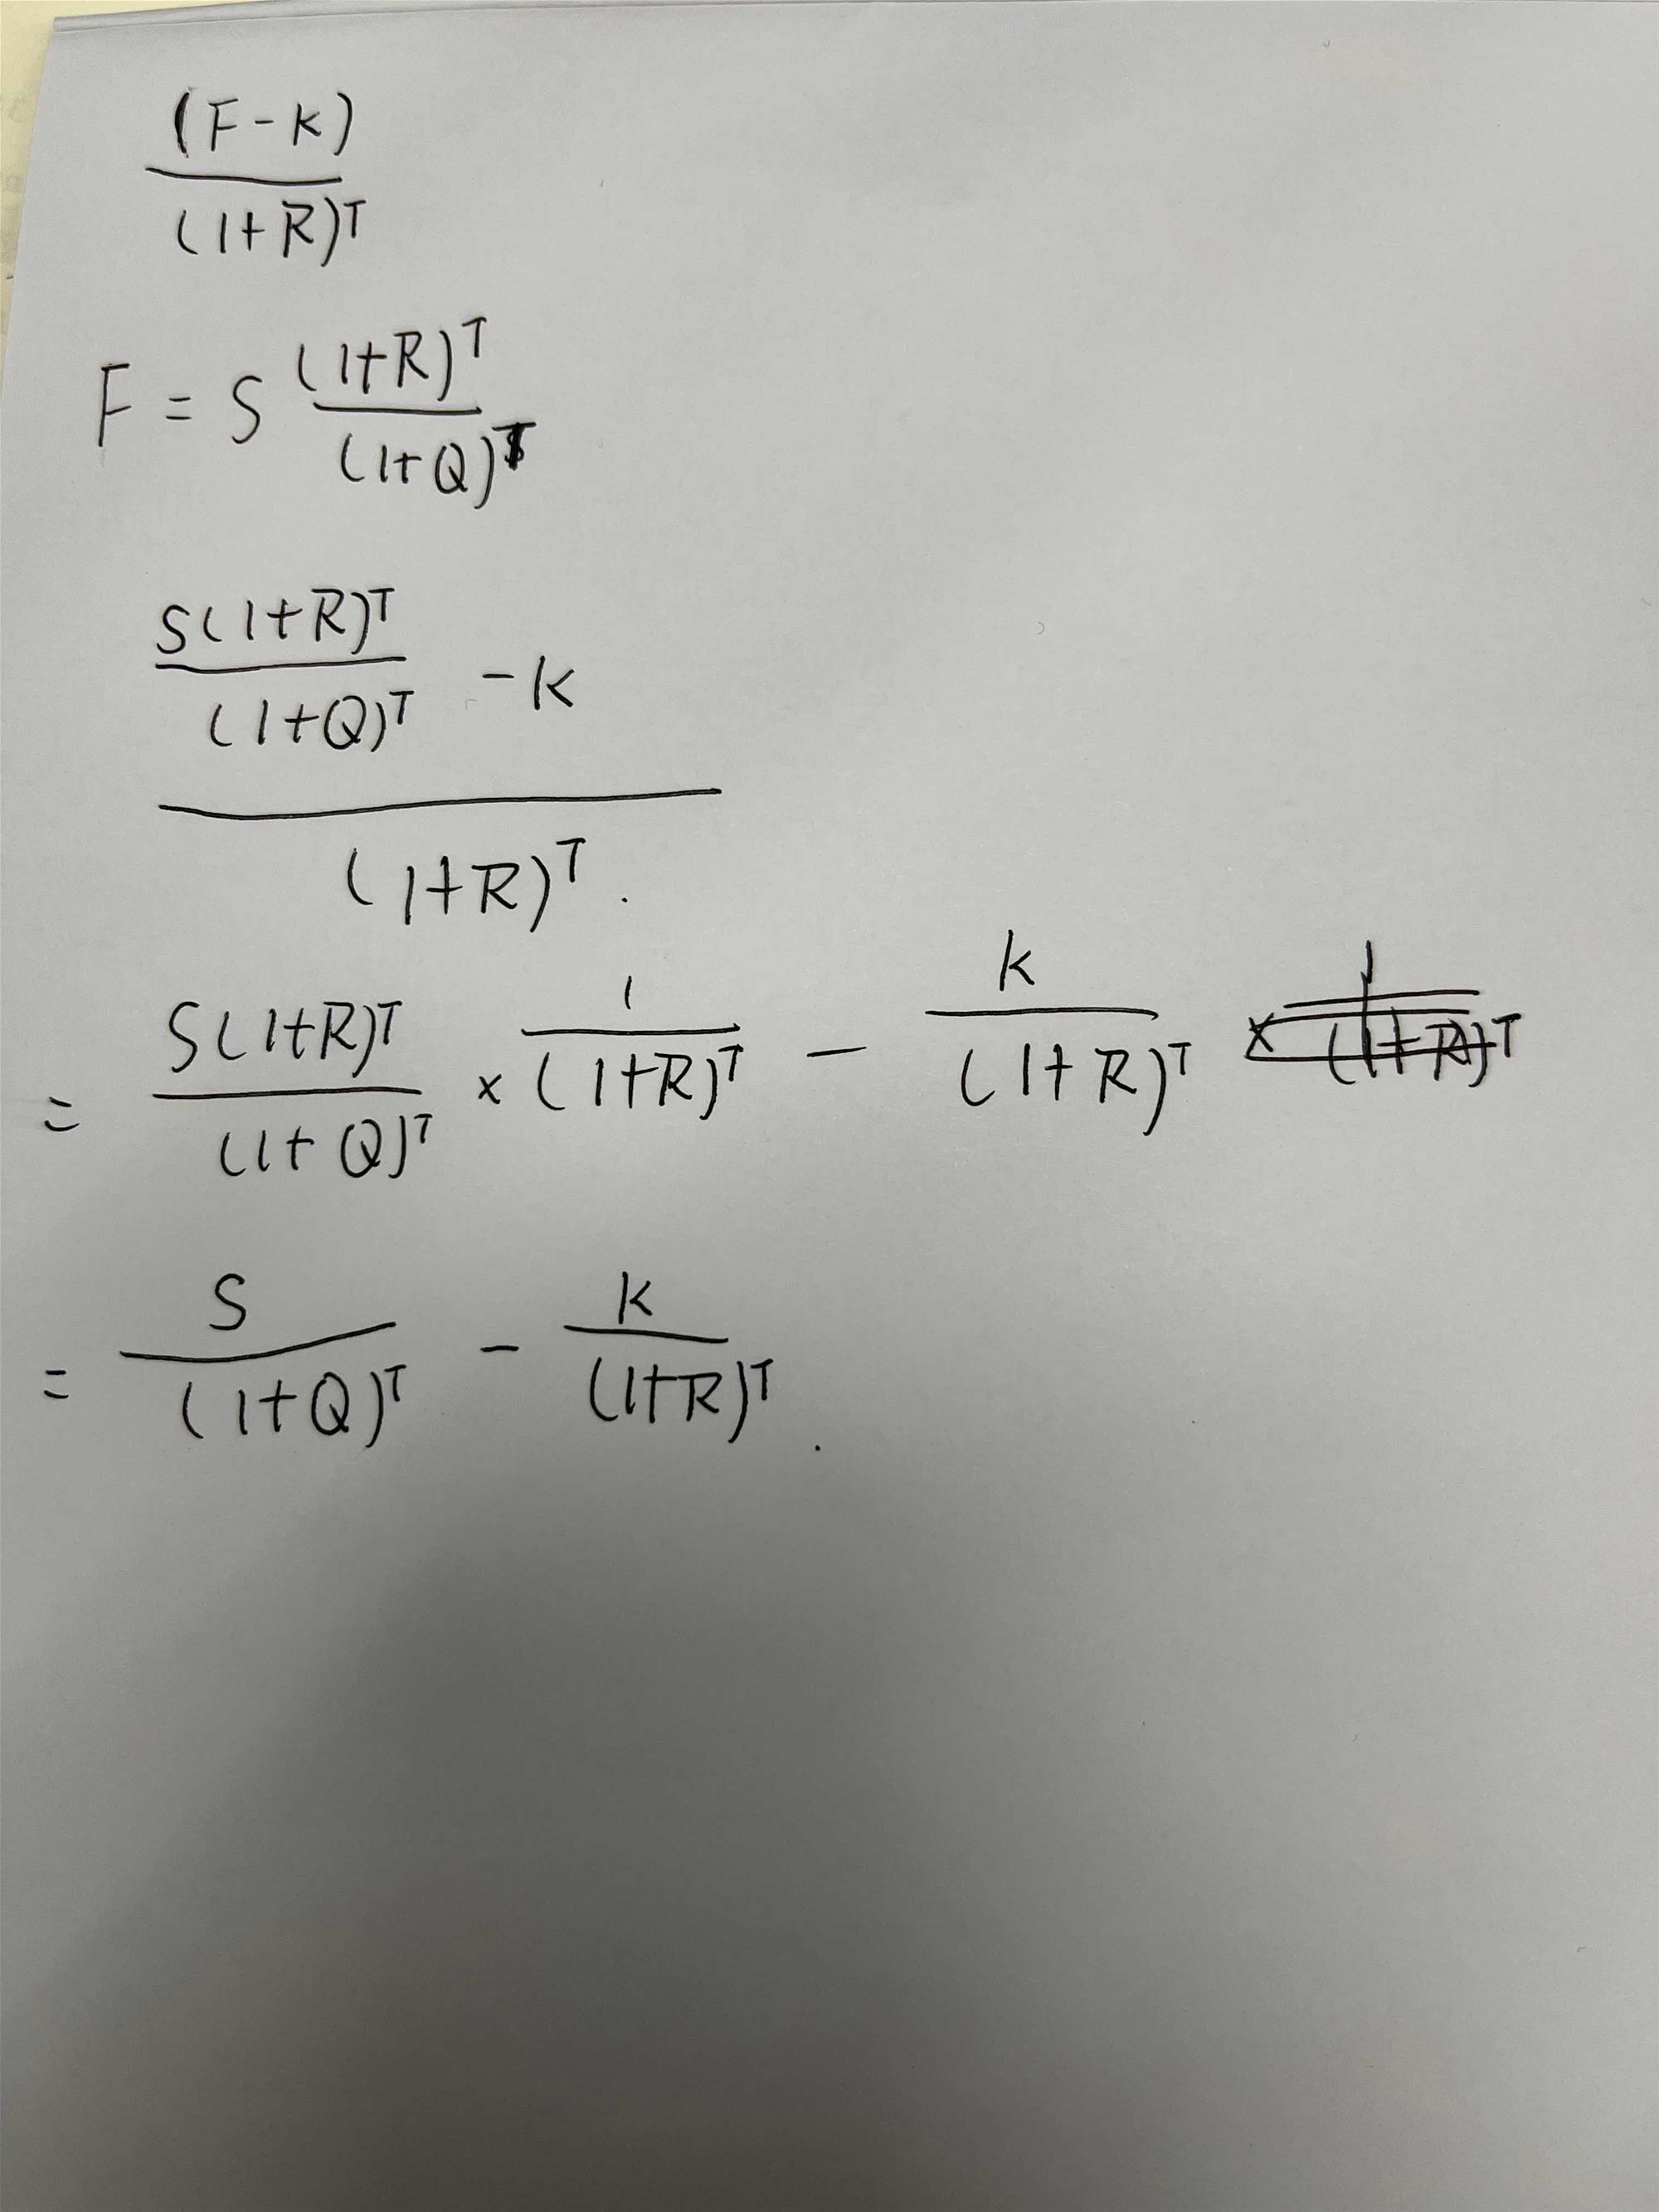 (F-K)
(1+R)^T
F = S (1+R)^T
(1+Q)^T
S(1+R)^T
(1+Q)^T - K
(1+R)^T.
= S(1+R)^T / (1+Q)^T × 1 / (1+R)^T - K / (1+R)^T × 1 / (1+R)^T
= S / (1+Q)^T - K / (1+R)^T.